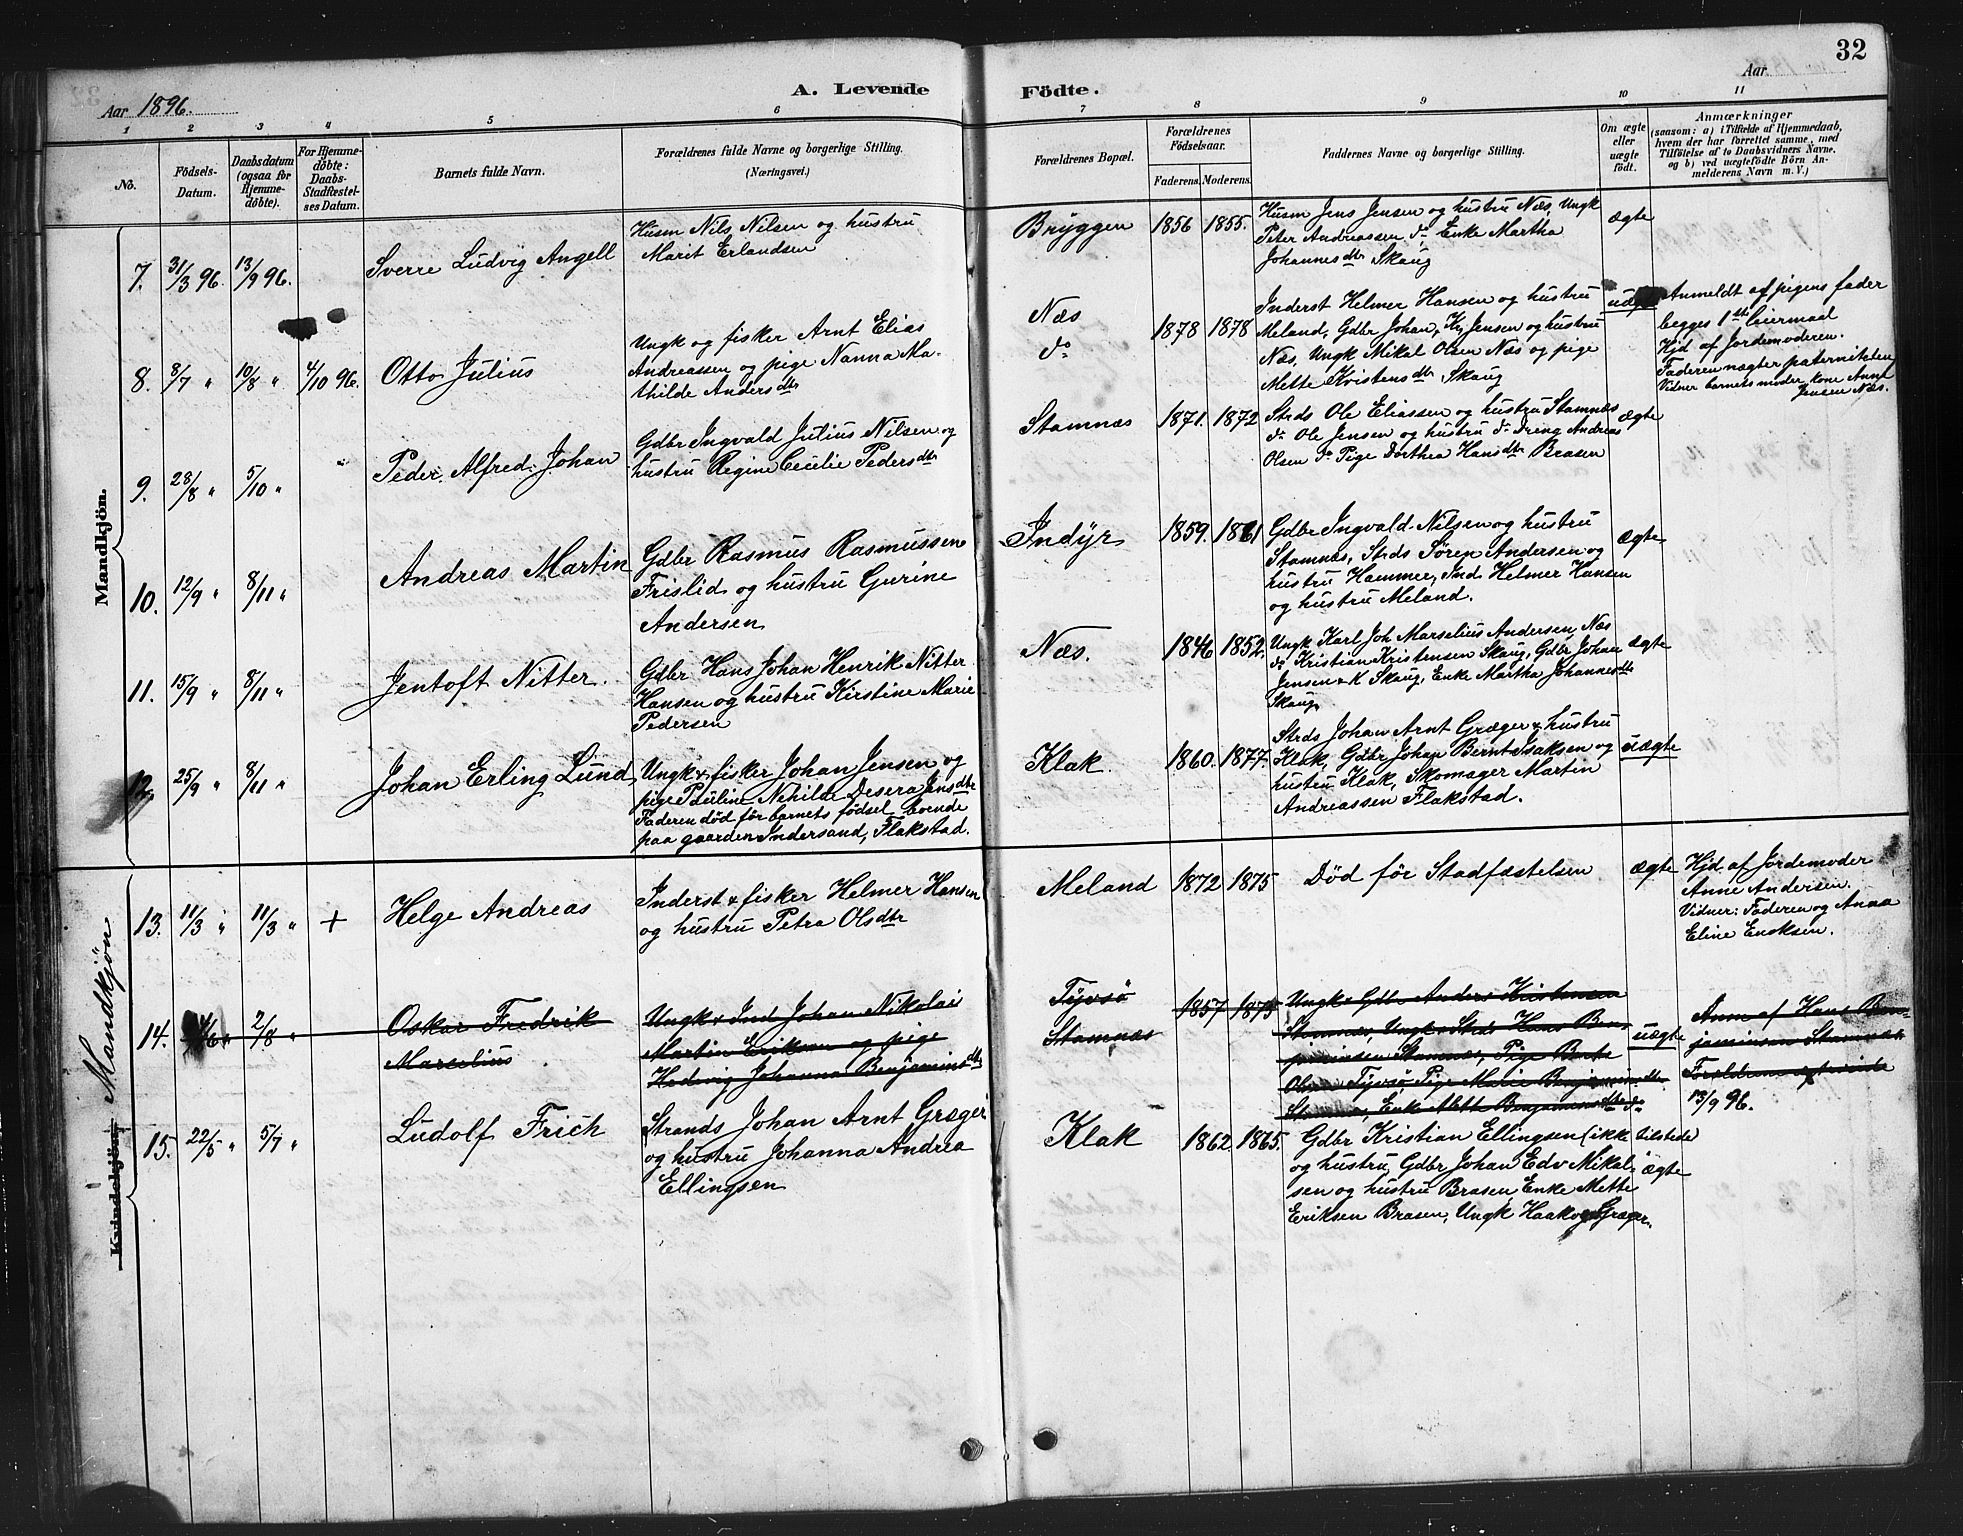 32
Aar 1896.
A. Levende Födte.
Aar
1 2 3 4 5 6 7 8 9 10 11
No.
Födsels-Datum.
Daabsdatum (ogsaa for Hjemme-döbte).
For Hjemme-döbte: Daabs-Stadfæstel-ses Datum.
Barnets fulde Navn.
Forældrenes fulde Navne og borgerlige Stilling. (Næringsvei.)
Forældrenes Bopæl.
Forældrenes Födselsaar.
Faderens. Moderens.
Faddernes Navne og borgerlige Stilling.
Om ægte eller uægte födt.
Anmærkninger
(saasom: a) i Tilfælde af Hjemmedaab, hvem der har forrettet samme, med Tilföielse af to Daabsvidners Navne, og b) ved uægtefödte Börn Anmelderens Navn m. V.)
Mandkjön.
7. 31/3 96. 13/9 96. Sverre Ludvig Angell
Husm Nils Nilsen og hustru
Marit Erlandsen
Bryggen 1856 1855.
Husm Jens Jensen og hustru Næs, Ungk
Peter Andreassen do Enke Martha
Johannesdtr Skaug
ægte
8. 8/7 " 10/8 " 4/10 96. Otto Julius
Ungk og fisker Arnt Elias
Andreassen og pige Nanna Ma-
thilde Andersdtr
Næs
do
1878 1878
Inderst Helmer Hansen og hustru
Meland, Gdbr Johan Kr Jensen og hustru
Næs, Ungk Mikal Olsen Næs og pige
Mette Kristensdtr Skaug
uægte
Anmeldt af pigens fader
begges 1ste leiermaal
Hjd af Jordemoderen.
Faderen nægter paterniteten
Vidner barnets moder, kone Anne
Jensen Næs.
9. 28/8 " 5/10 " Peder Alfred Johan
Gdbr Ingvald Julius Nilsen og
hustru Regine Cecilie Pedersdtr
Stamnæs 1871. 1872
Strds Ole Eliassen og hustru Stamnæs
do Ole Jensen og hustru do Dreng Andreas
Olsen do Pige Dorthea Hansdtr Brasen
ægte
10. 12/9 " 8/11 " Andreas Martin
Gdbr Rasmus Rasmussen
Frislid og hustru Gurine
Andersen
Indyr 1859. 1861
Gdbr Ingvald Nilsen og hustru
Stamnæs, Strds Sören Andersen og
hustru Hammer, Ind. Helmer Hansen
og hustru Meland.
ægte
11. 15/9 " 8/11 " Jentoft Nitter.
Gdbr Hans Johan Henrik Nitter
Hansen og hustru Kirstine Marie
Pedersen
Næs. 1846 1852.
Ungk Karl Joh Marselius Andersen, Næs
do Kristian Kristensen Skaug, Gdbr Johan
Jensen & K Skaug, Enke Martha Johannesdtr
Skaug
ægte
12. 25/9 " 8/11 " Johan Erling Lund
Ungk & fisker Johan Jensen og
pige Pauline Nehilde Desera Jensdtr
Faderen död för barnets födsel, boende
paa gaarden Indersand, Flakstad.
Klak. 1860. 1877.
Strds Johan Arnt Græger & hustru
Klak, Gdbr Johan Bernt Isaksen og
hustru Klak, Skomager Martin
Andreassen Flakstad.
uægte
Kvindekjön. Mandkjön
13. 11/3 " 11/3 " + Helge Andreas
Inderst & fisker Helmer Hansen
og hustru Petra Olsdtr
Meland 1872 1875
Död för Stadfæstelsen
ægte
Hjd. af Jordemoder
Anne Andersen.
Vidner: Faderen og Anna
Eline Enoksen.
14. /6 " 2/8 " Oskar Fredrik
Marselius
Ungk & Ind Johan Nikolai
Martin Eriksen og pige
Hedvig Johanna Benjaminsdtr
Tyvsö
Stamnæs
1857 1875
Ungk & Gdbr Anders Kristensen
Stamnæs, Ungk & Strds Hans Ben-
jaminsen Stamnæs, Pige Berte
Olsen Tyvsö Pige Marie Benjaminsdtr
Stamnæs, Enke Benjaminsdtr do
uægte
Anm af Hans Ben-
jaminsen Stamnæs
Forældrene
13/9 96.
15. 22/5 " 5/7 " Ludolf Frich
Strands Johan Arnt Græger
og hustru Johanna Andrea
Ellingsen
Klak 1862 1865.
Gdbr Kristian Ellingsen (ikke tilstede)
og hustru, Gdbr Johan Edv Mikal-
sen og hustru Brasen, Enke Mette
Eriksen Brasen, Ungk Haakon Græger.
ægte